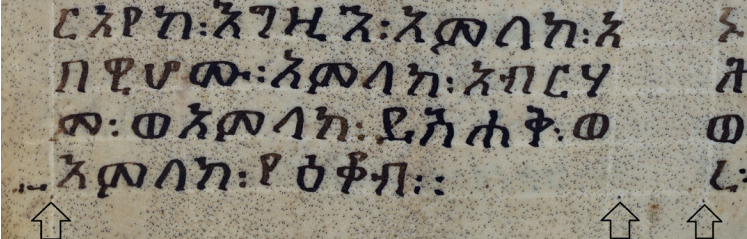 ርአየከ፡እግዚአ፡አምላከ፡አ
በዊሆሙ፡አምላከ፡አብርሃ
ም፡ወአምላከ፡ይስሐቅ፡ወ
አምላከ፡ያዕቆብ፡፡